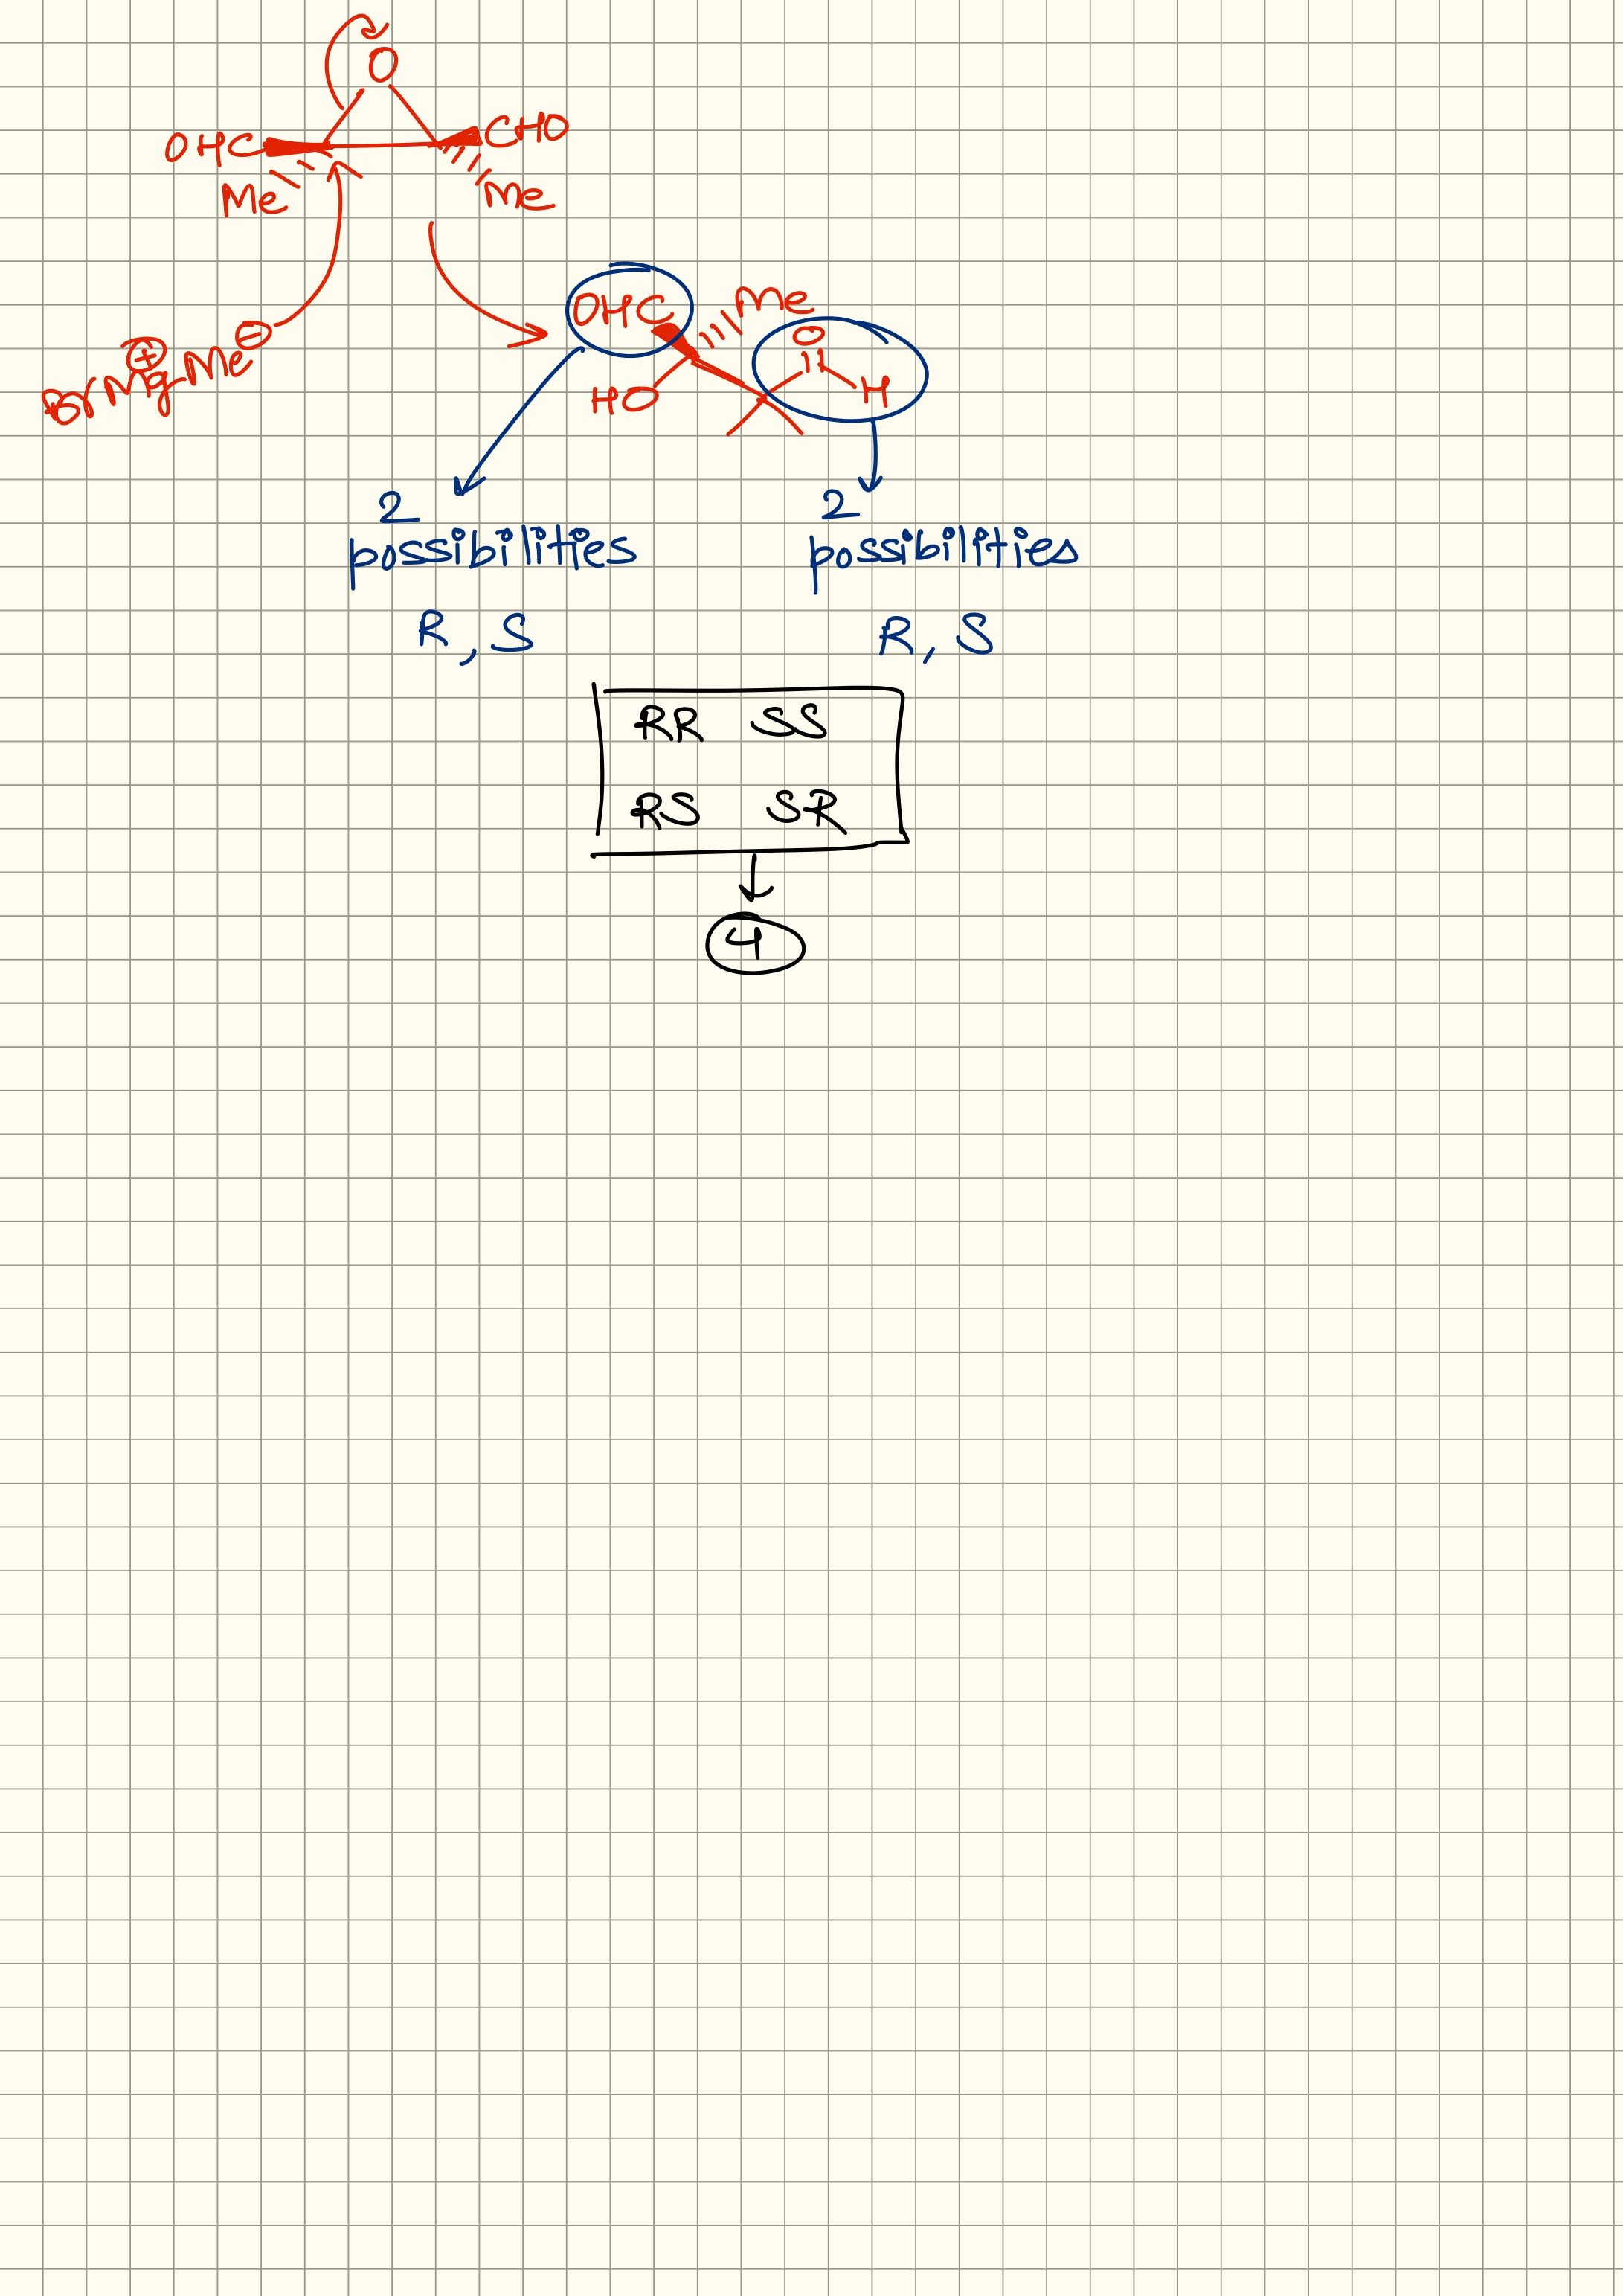 O
OHC CHO
Me Me
OHC Me
O
BrMg Me ⊕ ⊖
HO H
2 2
possibilities possibilities
R, S R, S
RR SS
RS SR
4